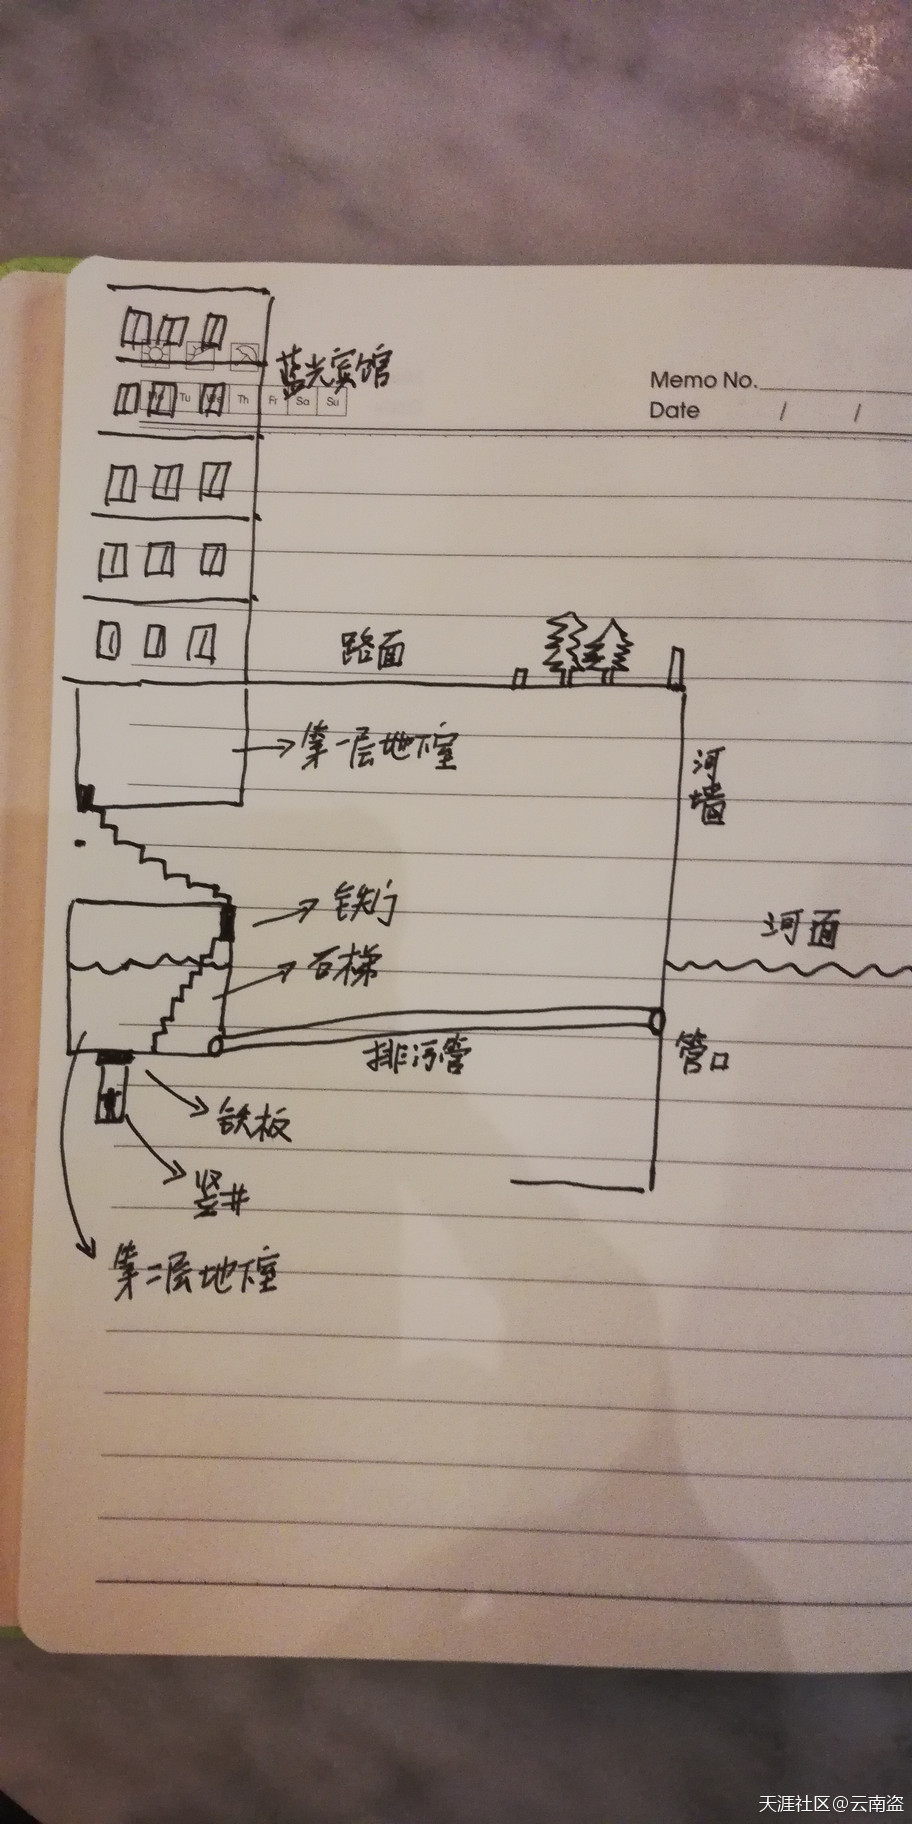 蓝光宾馆
Memo No.
Tu We Th Fr Sa Su
Date / /
路面
第一层地下室
河墙
铁门
河面
石梯
排污管
管口
铁板
竖井
第二层地下室
天涯社区@云南盗